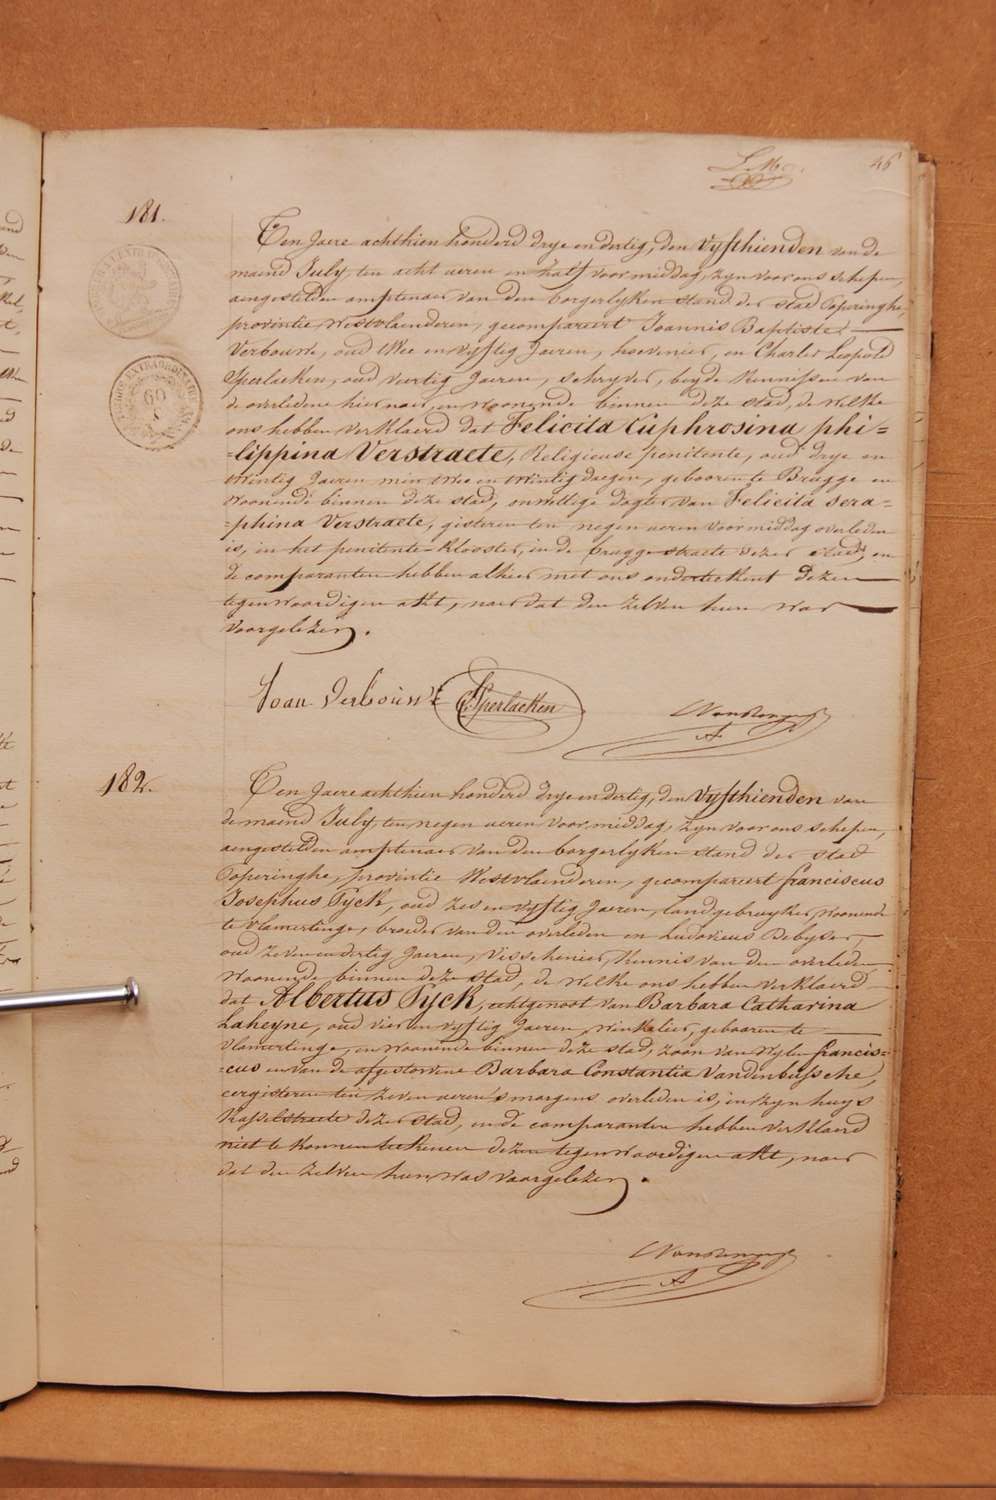 46
181.
Ten Jaere achthien honderd drye en dertig, den vyfthienden van de
maend July, ten acht ueren en half voormiddag, zyn voor ons schepen,
aengestelden amptenaer van den borgerlyken stand der stad Poperinghe,
provintie Westvlaenderen, gecompareert Joannis Baptiste
Verbouw, oud twee en vyftig Jaeren, hovenier, en Charles Leopold
Sperlaeken, oud veertig Jaeren, schryver, beyde kennissen van
de overledene hier naer, en woonende binnen deze stad, de welke
ons hebben verklaerd dat Felicita Euphrosina phi=
=lippina Verstraete, Religieuse penitente, oud drye en
twintig Jaeren min twee en twintig daegen, geboren te Brugge en
woonende binnen deze stad, onwettige dogter van Felicita sera=
=phina Verstraete, gisteren ten negen ueren voormiddag overleden
is, in het penitente-klooster, in de brugge straete dezer stad, en
de comparanten hebben alhier met ons onderteekent dezen
tegenwoordigen akt, naer dat den zelven hun was
voorgelezen.
Joan Verbouw C. Sperlaeken
182.
Ten Jaere achthien honderd drye en dertig, den vyfthienden van
de maend July, ten negen ueren voormiddag, zyn voor ons schepen,
aengestelden amptenaer van den borgerlyken stand der stad
Poperinghe, provintie Westvlaenderen, gecompareert franciscus
Josephus Pyck, oud zes en vyftig Jaeren, landgebruyker, woonende
te vlamertinge, broeder van den overleden en Ludovicus Debyser,
oud zeven en dertig Jaeren, visschenier, kennis van den overleden
woonende binnen deze stad, de welke ons hebben verklaerd
dat Albertus Pyck, echtgenoot van Barbara Catharina
Laheyne, oud vier en vyftig Jaeren, winkelier, gebooren te
vlamertinge, en woonende binnen deze stad, zoon van wylen francis=
=cus en van de afgestorvene Barbara Constantia Vandenbussche,
eergisteren ten zeven ueren 's morgens overleden is, in zyn huys
Kasselstraete dezer stad, en de comparanten hebben verklaerd
niet te konnen teekenen dezen tegenwoordigen akt, naer
dat den zelven hun was voorgelezen.